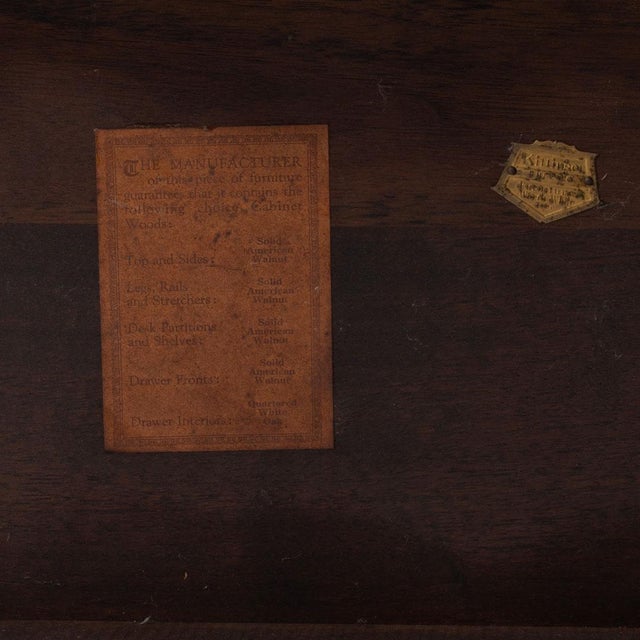 THE MANUFACTURER
of this piece of furniture
guarantees that it contains the
following choice Cabinet
Woods:
Top and Sides: Solid American Walnut
Legs, Rails and Stretchers: Solid American Walnut
Desk Partitions and Shelves: Solid American Walnut
Drawer Fronts: Solid American Walnut
Drawer Interiors: Quartered White Oak